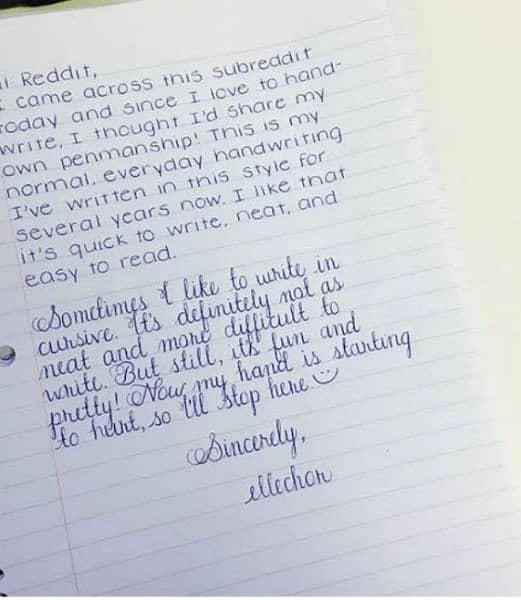 Reddit,
I came across this subreddit
today and since I love to hand-
write, I thought I'd share my
own penmanship! This is my
normal, everyday handwriting
I've written in this style for
several years now. I like that
it's quick to write, neat, and
easy to read.
Sometimes I like to write in
cursive. It's definitely not as
neat and more difficult to
write. But still, it's fun and
pretty! Now my hand is starting
to hurt, so I'll stop here ☺
Sincerely,
ellechon